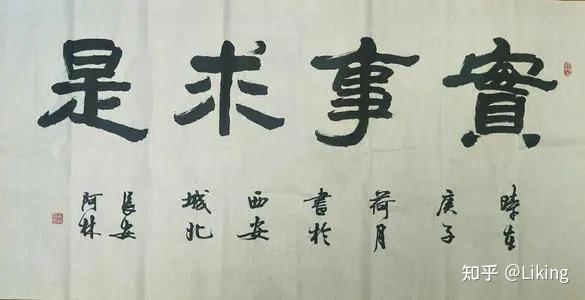 實事求是
時在
庚子
荷月
書於
西安
城北
長安
阿林
知乎 @Liking